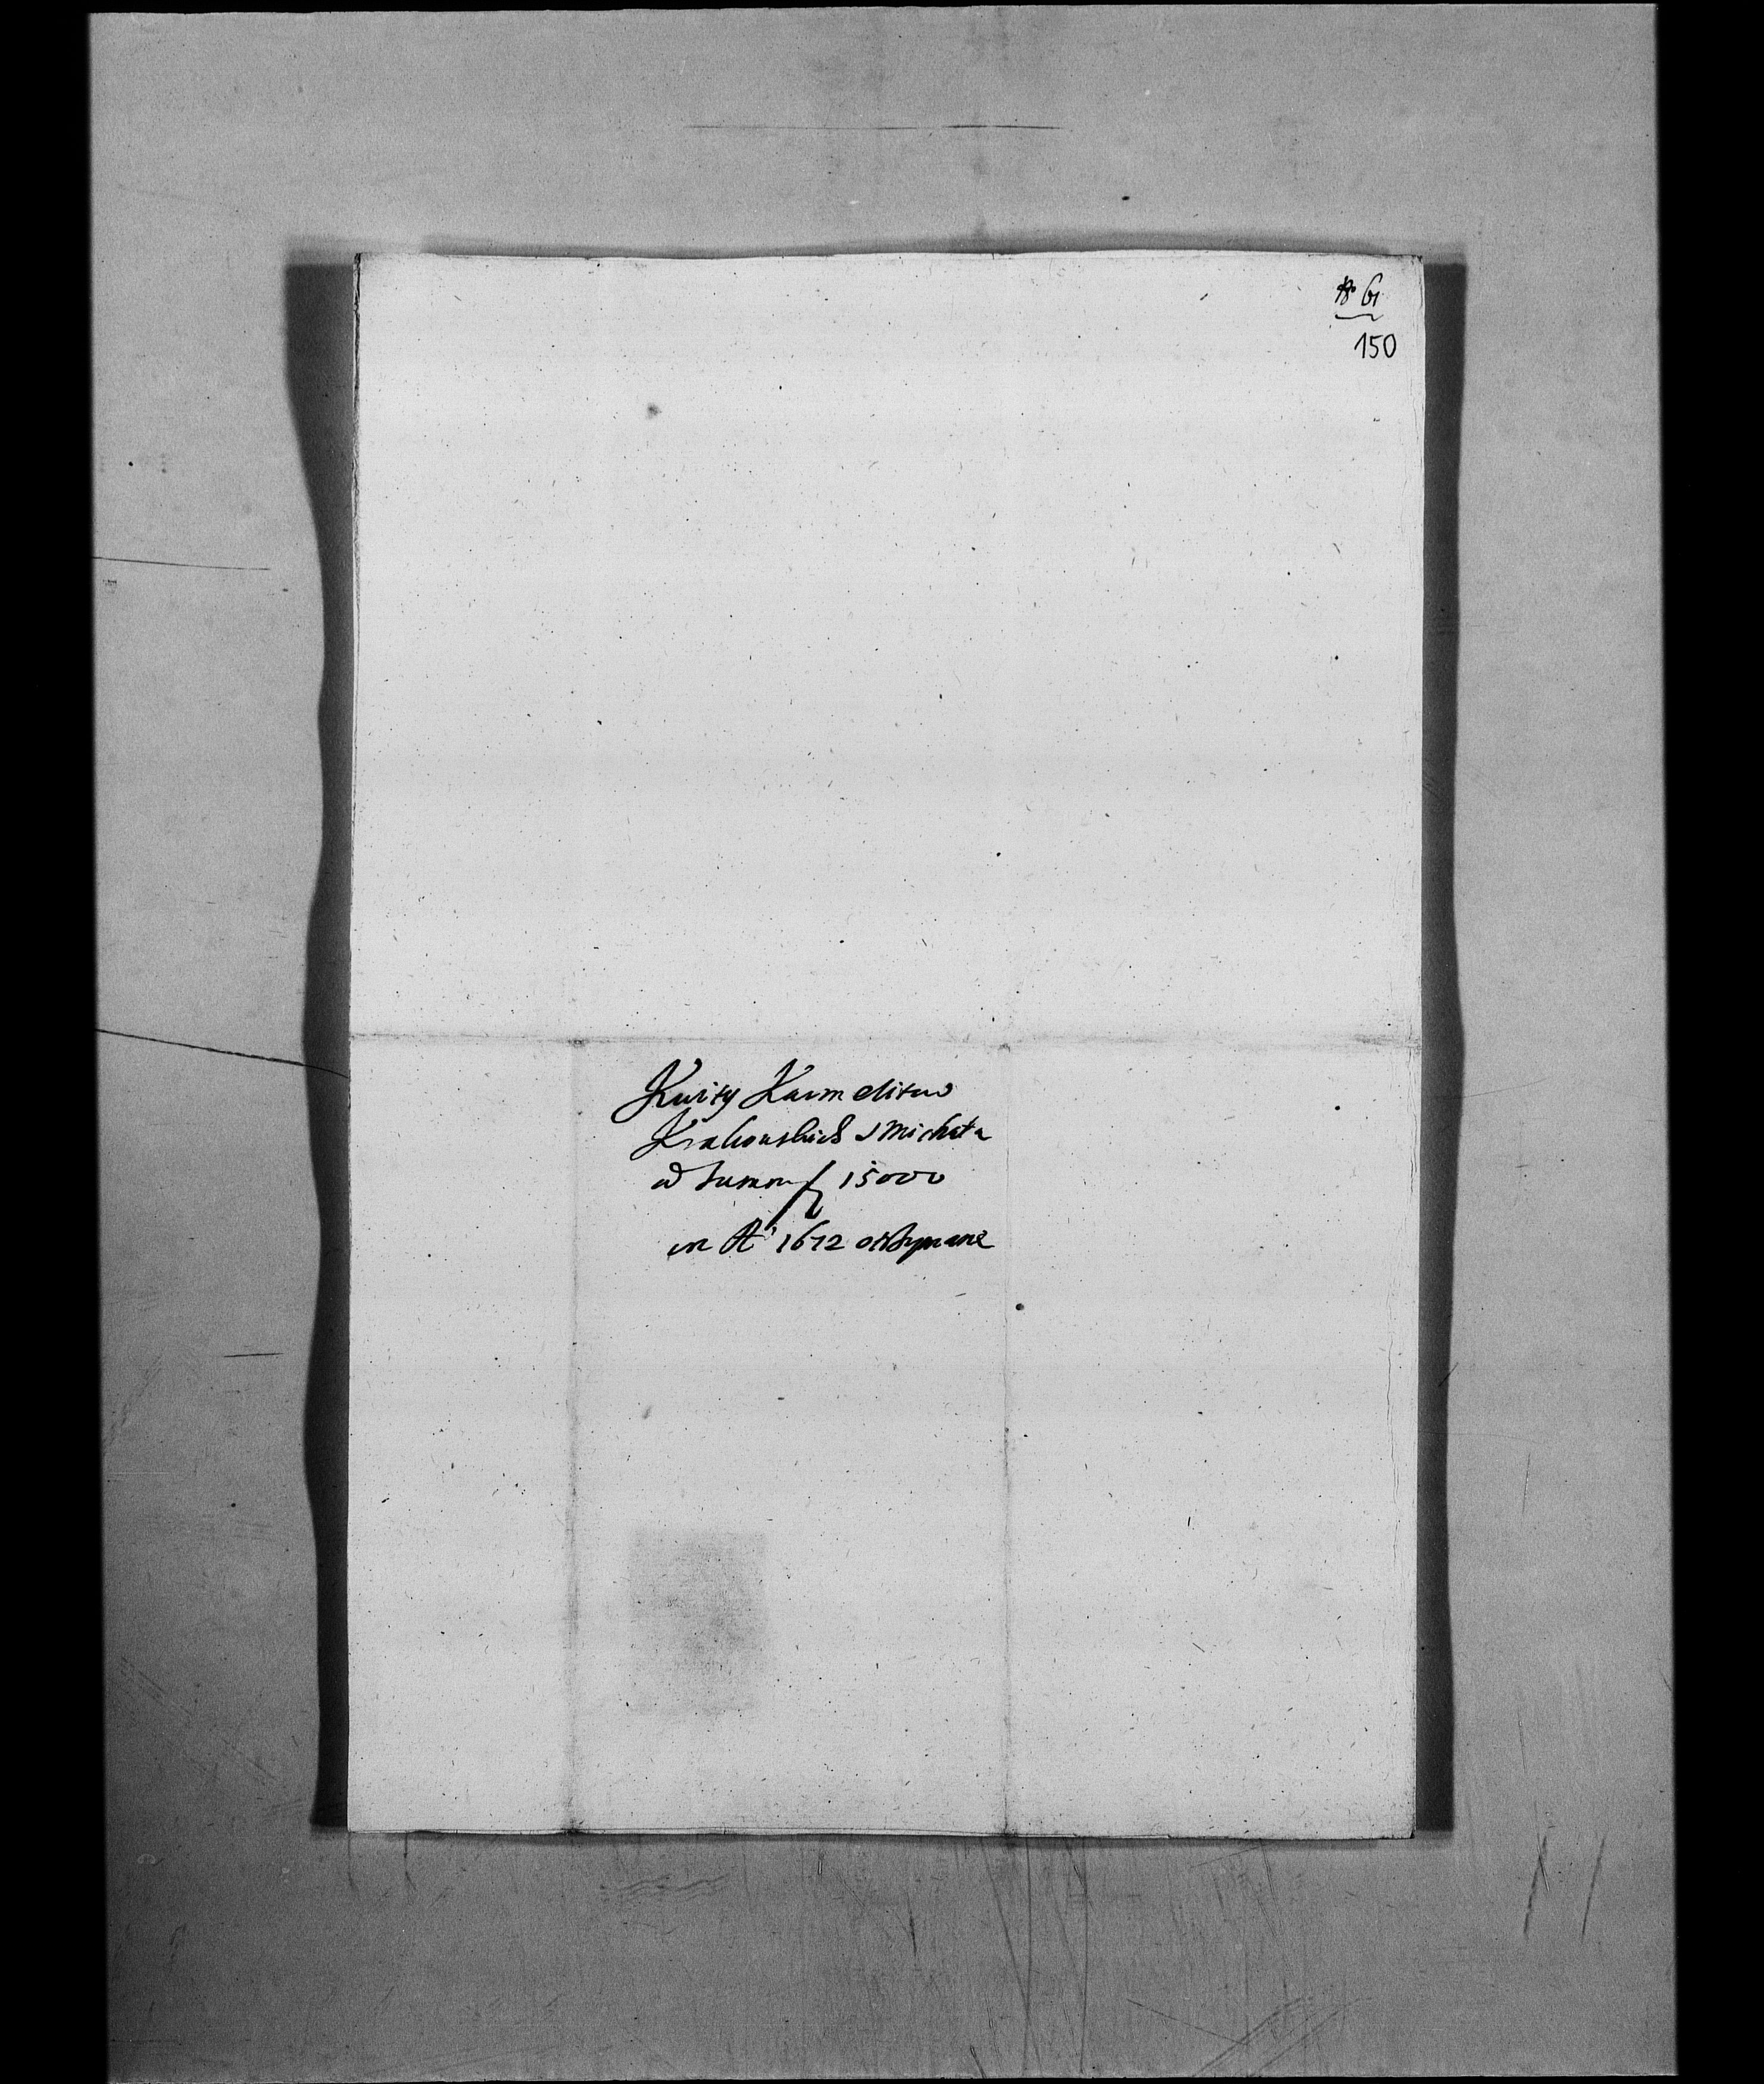 61
150
Kwity Karmelitow
Krakowskich S Michała
od Summy f 15000
in A° 1672 otrzymane